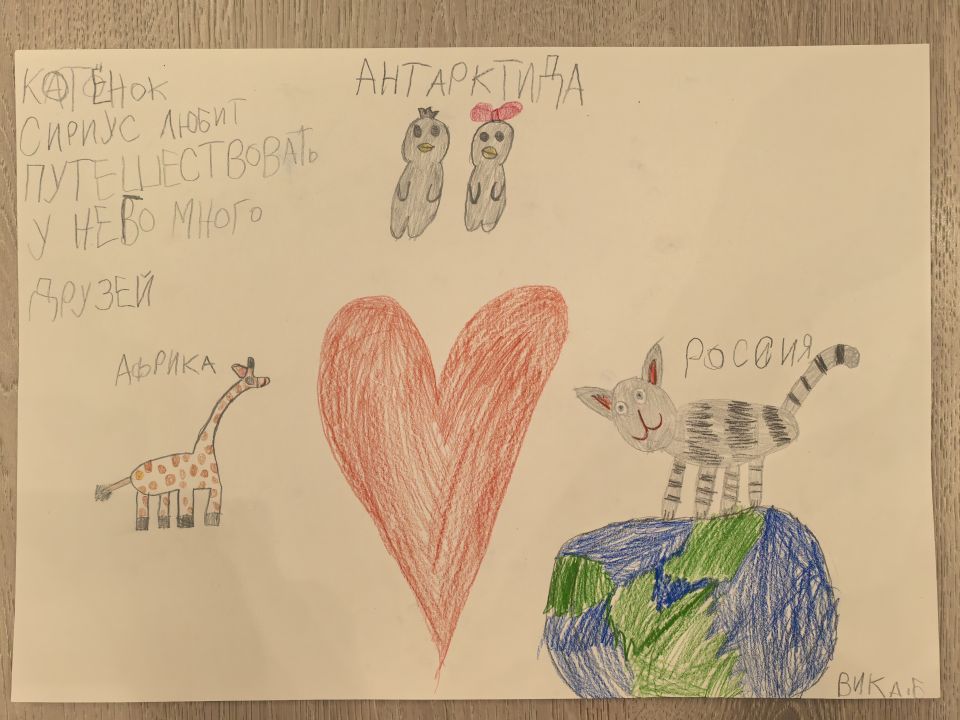 КОТЁНОК
СИРИУС ЛЮБИТ
ПУТЕШЕСТВОВАТЬ
У НЕВО МНОГО
ДРУЗЕЙ
АНТАРКТИДА
АФРИКА
РОССИЯ
ВИКА.Б